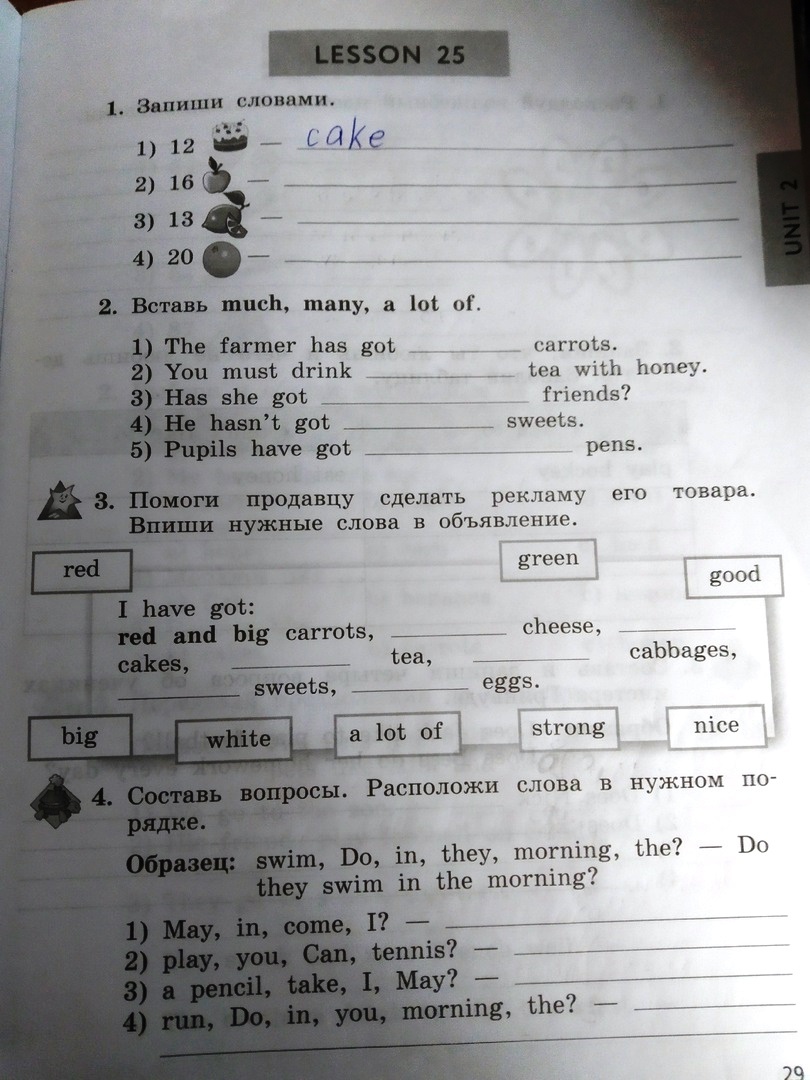 LESSON 25
1. Запиши словами.
1) 12 — cake
2) 16 —
3) 13 —
4) 20 —
UNIT 2
2. Вставь much, many, a lot of.
1) The farmer has got ________ carrots.
2) You must drink ________ tea with honey.
3) Has she got ________ friends?
4) He hasn't got ________ sweets.
5) Pupils have got ________ pens.
3. Помоги продавцу сделать рекламу его товара.
Впиши нужные слова в объявление.
red green good
I have got:
red and big carrots, ________ cheese, ________
cakes, ________ tea, ________ cabbages,
________ sweets, ________ eggs.
big white a lot of strong nice
4. Составь вопросы. Расположи слова в нужном по-
рядке.
Образец: swim, Do, in, they, morning, the? — Do
they swim in the morning?
1) May, in, come, I? —
2) play, you, Can, tennis? —
3) a pencil, take, I, May? —
4) run, Do, in, you, morning, the? —
29